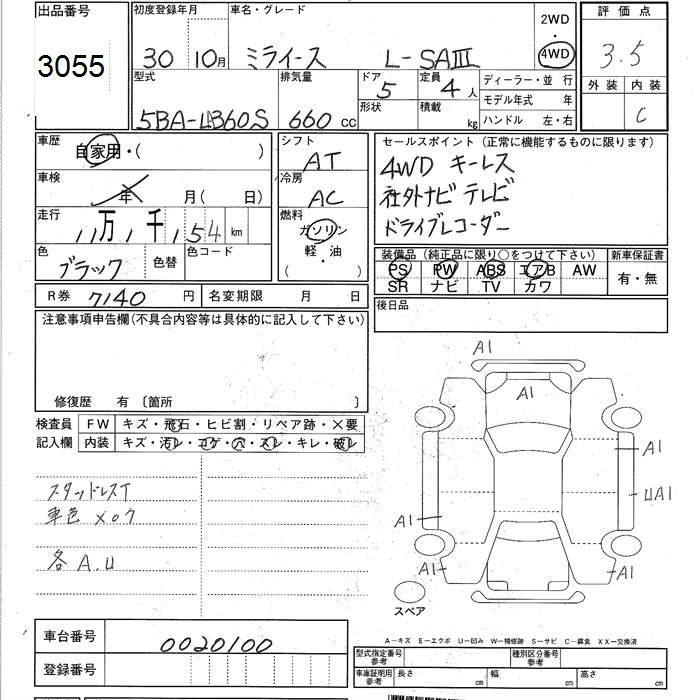 出品番号
3055
初度登録年月
30 10月
車名・グレード
ミライース L-SAⅢ
2WD
・
4WD
評価点
3.5
外装 内装
C
型式
5BA-LA360S
排気量
660 CC
ドア
5
形状
定員
4人
積載
kg
ディーラー・並 行
モデル年式 年
ハンドル 左・右
車歴
自家用・( )
車検
年 月( 日)
走行
11万 1千 154 km
色
ブラック
色替
色コード
シフト
AT
冷房
AC
燃料
ガソリン
軽・油
( )
セールスポイント(正常に機能するものに限ります)
4WD キーレス
社外ナビ テレビ
ドライブレコーダー
装備品(純正品に限り○をつけて下さい)
PS PW ABS エアB AW
SR ナビ TV カワ
新車保証書
有・無
R券 7140 円
名変期限 月 日
後日品
注意事項申告欄(不具合内容等は具体的に記入して下さい)
修復歴 有 〔箇所 〕
検査員
記入欄
FW キズ・飛石・ヒビ割・リペア跡・×要
内装 キズ・汚レ・コゲ・穴・スレ・キレ・破レ
スタッドレスT
車色 X07
各 A.U
A1
A1
A1
UA1
A1
A1
A1
スペア
車台番号
0020100
登録番号
A－キズ E－エクボ U－凹み W－補修跡 S－サビ C－腐食 XX－交換済
型式指定番号
参考
種別区分番号
参考
車庫証明用
参考
長さ cm
幅 cm
高さ cm